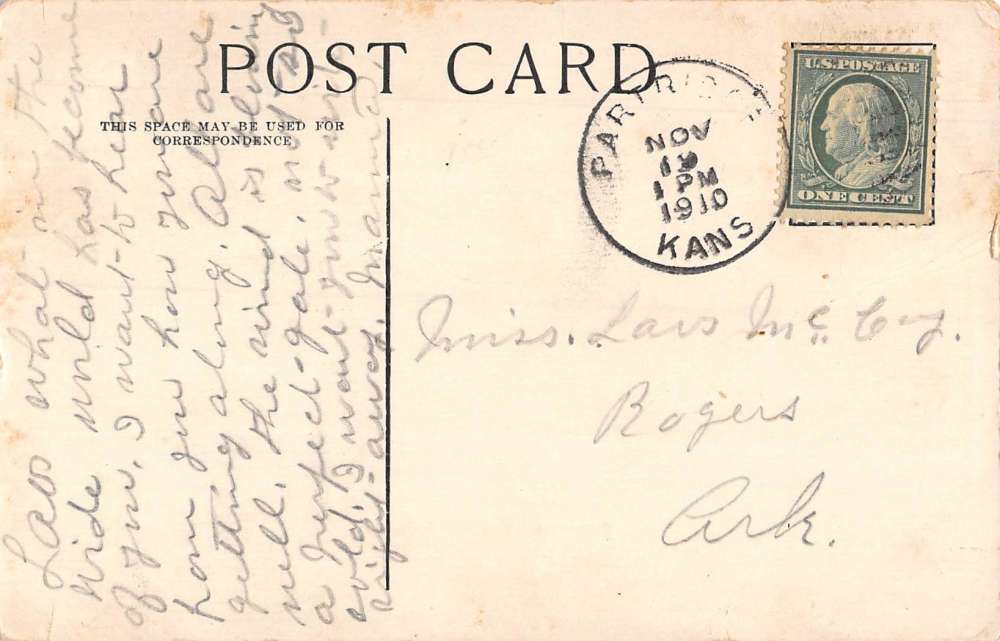 POST CARD
THIS SPACE MAY BE USED FOR
CORRESPONDENCE
Lois what in the
wide world has become
of you, I want to hear
from you how you are
getting along. All are
well, the wind is blowing
a perfect gale, not so
cold, I want you to write
right away. Mamma
PARTRIDGE
NOV
1 PM
1910
KANS
U.S. POSTAGE
ONE CENT
Miss. Lois Mc Coy.
Rogers
Ark.